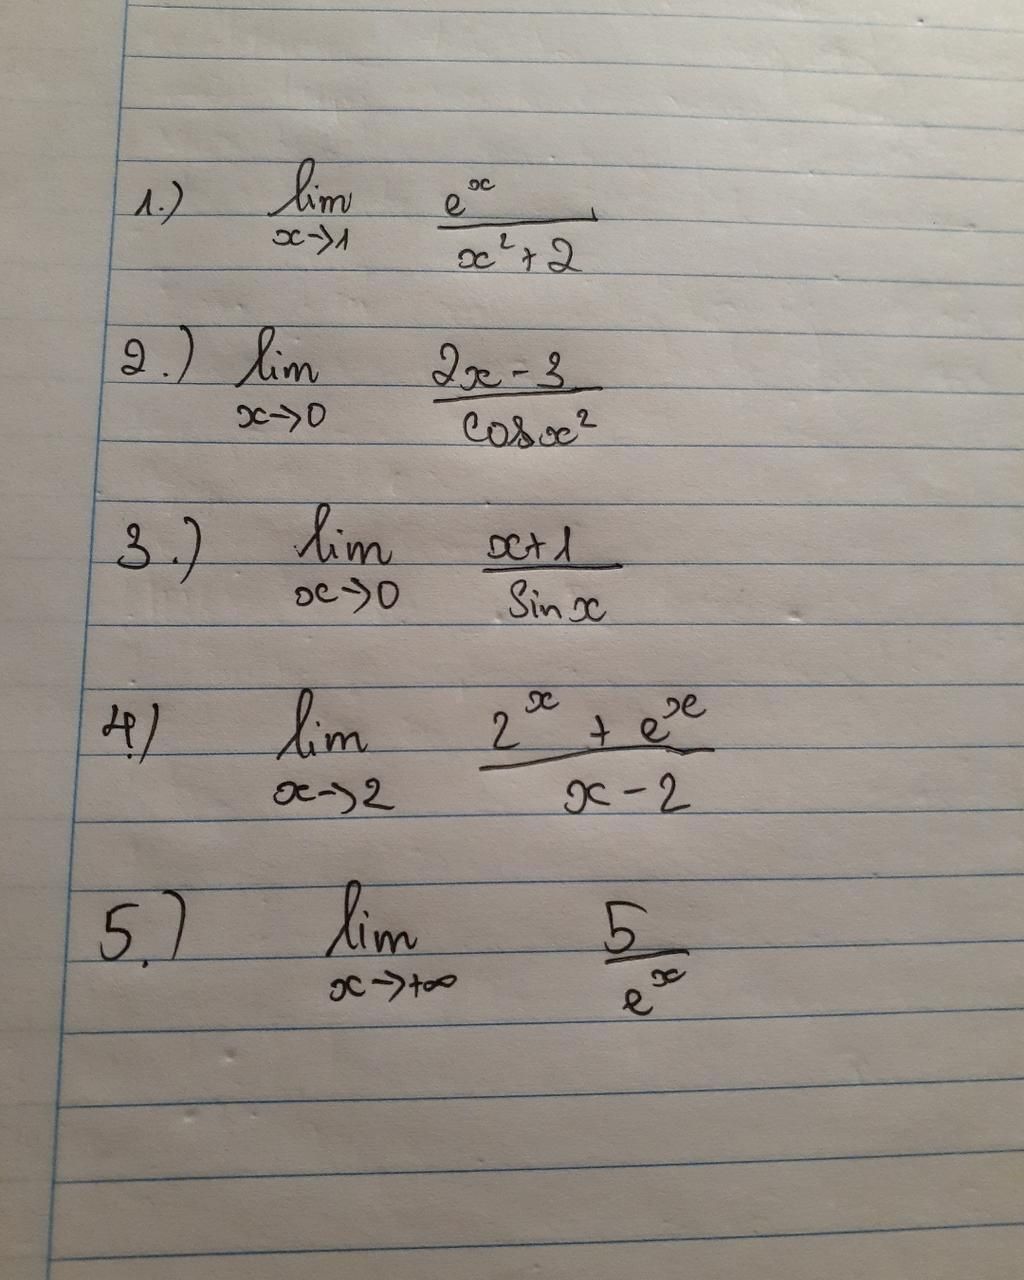 1.) lim x→1 e^x / x²+2
2.) lim x→0 2x-3 / cos x²
3.) lim x→0 x+1 / sin x
4.) lim x→2 2^x + e^x / x-2
5.) lim x→+∞ 5 / e^x